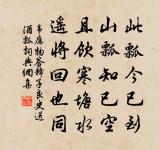 此瓢今已到
山瓢知已空
且飲寒塘水
遥將回也同
韋應物答釋子良史送
酒瓢詞典網集